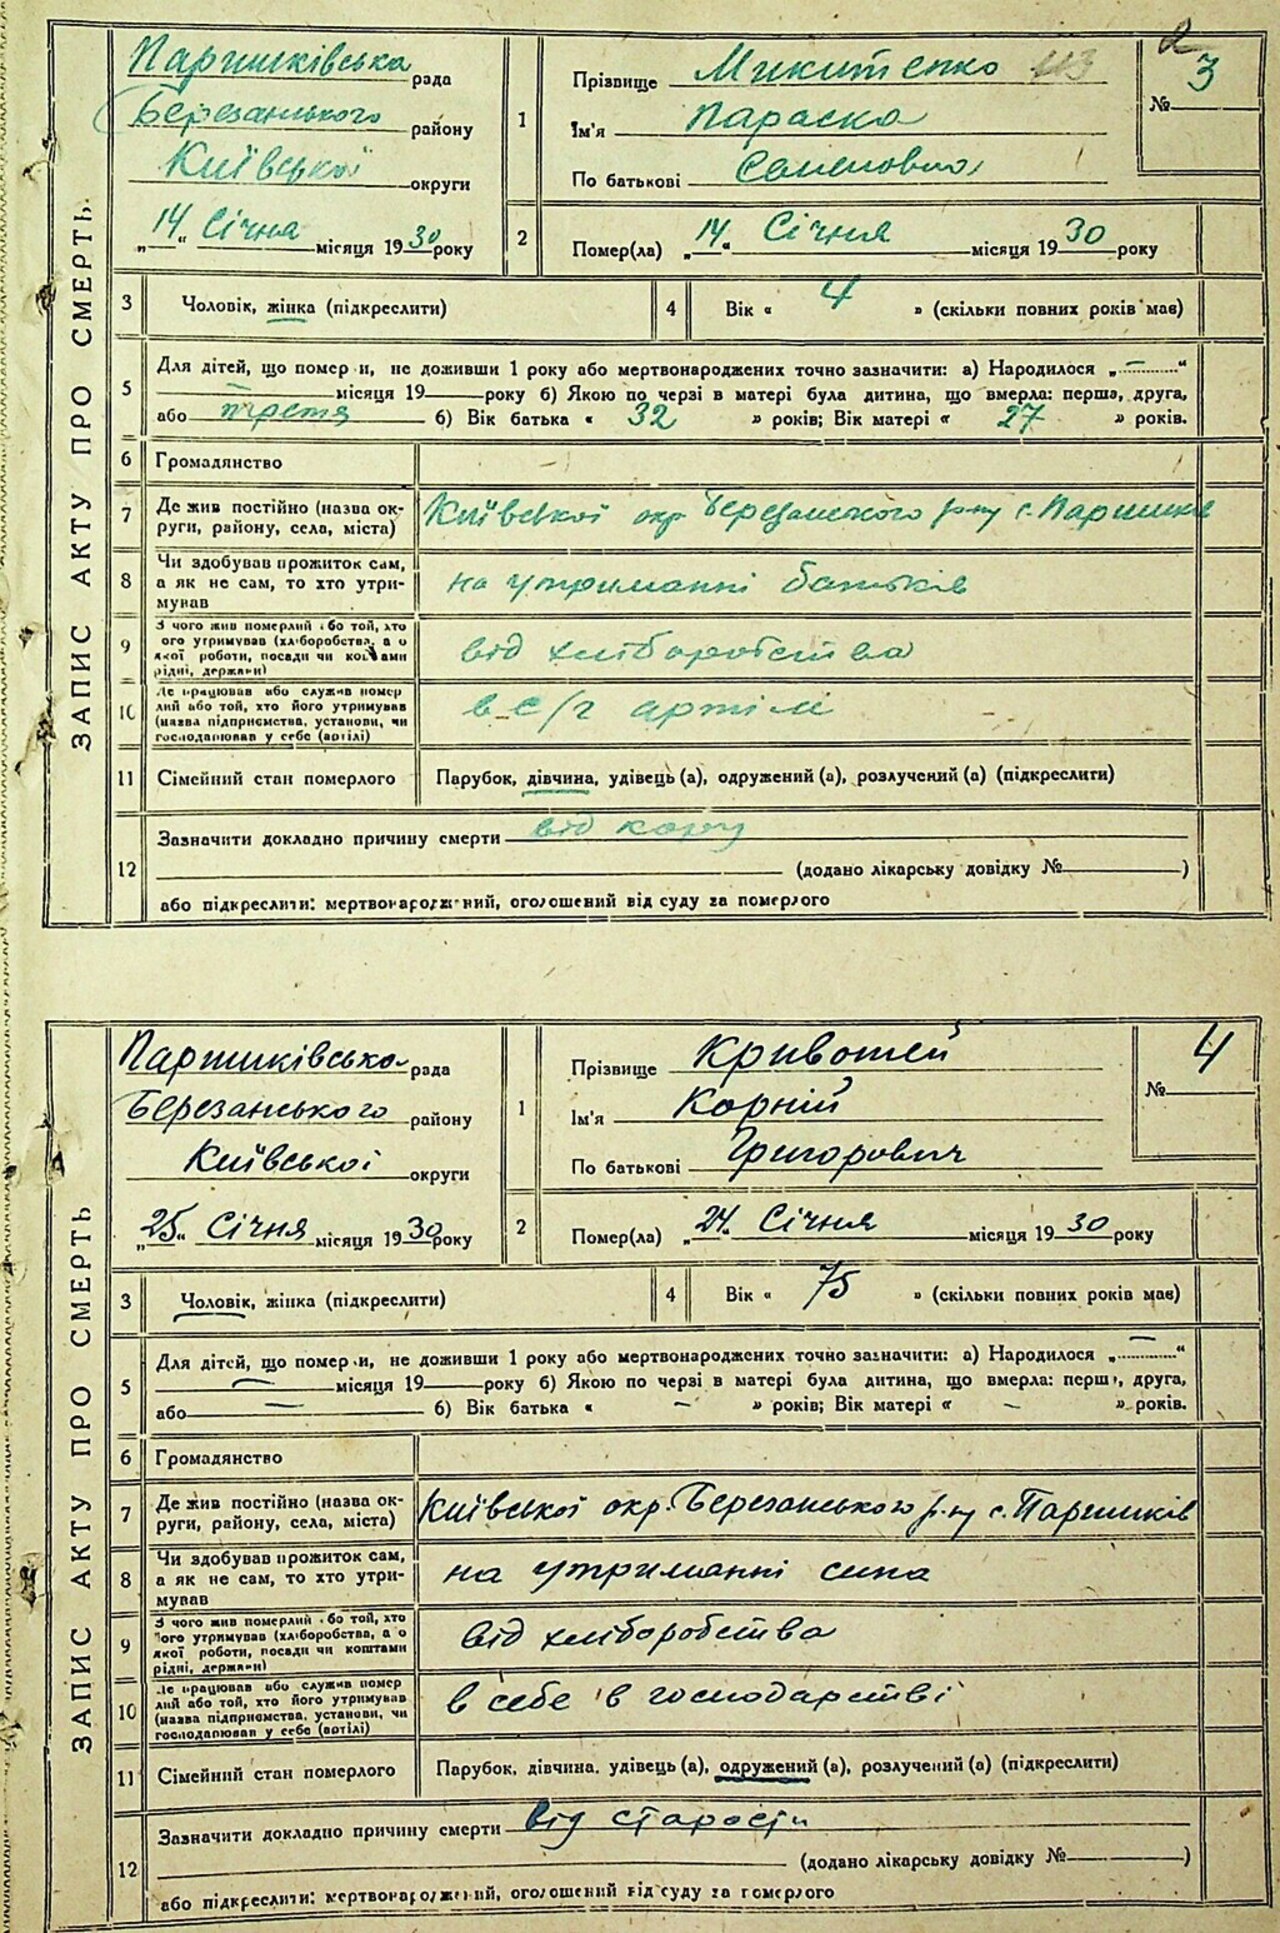 ЗАПИС АКТУ ПРО СМЕРТЬ.
Паришківська рада
Березанського району
Київської округи
„14“ Січня місяця 1930 року
1
Прізвище Микитенко
Ім'я Параска
По батькові Семеновна
2
№ 3
2 Помер(ла) „14“ Січня місяця 1930 року
3 Чоловік, жінка (підкреслити)
4 Вік « 4 » (скільки повних років має)
5 Для дітей, що помер и, не доживши 1 року або мертвонароджених точно зазначити: а) Народилося „ — “
— місяця 19 року б) Якою по черзі в матері була дитина, що вмерла: перша, друга,
або третя б) Вік батька « 32 » років; Вік матері « 27 » років.
6 Громадянство
7 Де жив постійно (назва ок-
руги, району, села, міста)
Київської окр Березанського р-ну с. Паришків
8 Чи здобував прожиток сам,
а як не сам, то хто утри-
мував
на утриманні батьків
9 З чого жив померлий або той, хто
ого утримував (хліборобства, а о
якої роботи, посади чи коштами
рідні, держави)
від хліборобства
10 Де працював або служив помер
лий або той, хто його утримував
(назва підприємства, установи, чи
господарював у себе (артілі)
в с/г артілі
11 Сімейний стан померлого
Парубок, дівчина, удівець (а), одружений (а), розлучений (а) (підкреслити)
12 Зазначити докладно причину смерти від кору
(додано лікарську довідку № )
або підкреслити: мертвонароджений, оголошений від суду за померлого
ЗАПИС АКТУ ПРО СМЕРТЬ
Паришківська рада
Березанського району
Київської округи
„25“ Січня місяця 1930 року
1
Прізвище Кривошей
Ім'я Корній
По батькові Григорович
№ 4
2 Помер(ла) „24.“ Січня місяця 1930 року
3 Чоловік, жінка (підкреслити)
4 Вік « 75 » (скільки повних років має)
5 Для дітей, що помер и, не доживши 1 року або мертвонароджених точно зазначити: а) Народилося „ — “
— місяця 19 року б) Якою по черзі в матері була дитина, що вмерла: перша, друга,
або — б) Вік батька « — » років; Вік матері « — » років.
6 Громадянство
7 Де жив постійно (назва ок-
руги, району, села, міста)
Київської окр. Березанського р-ну с. Паришків
8 Чи здобував прожиток сам,
а як не сам, то хто утри-
мував
на утриманні сина
9 З чого жив померлий або той, хто
його утримував (хліборобства, а о
якої роботи, посади чи коштами
рідні, держави)
від хліборобства
10 Де працював або служив помер
лий або той, хто його утримував
(назва підприємства, установи, чи
господарював у себе (артілі)
в себе в господарстві
11 Сімейний стан померлого
Парубок, дівчина, удівець (а), одружений (а), розлучений (а) (підкреслити)
12 Зазначити докладно причину смерти від старости
(додано лікарську довідку № )
або підкреслити: мертвонароджений, оголошений від суду за померлого